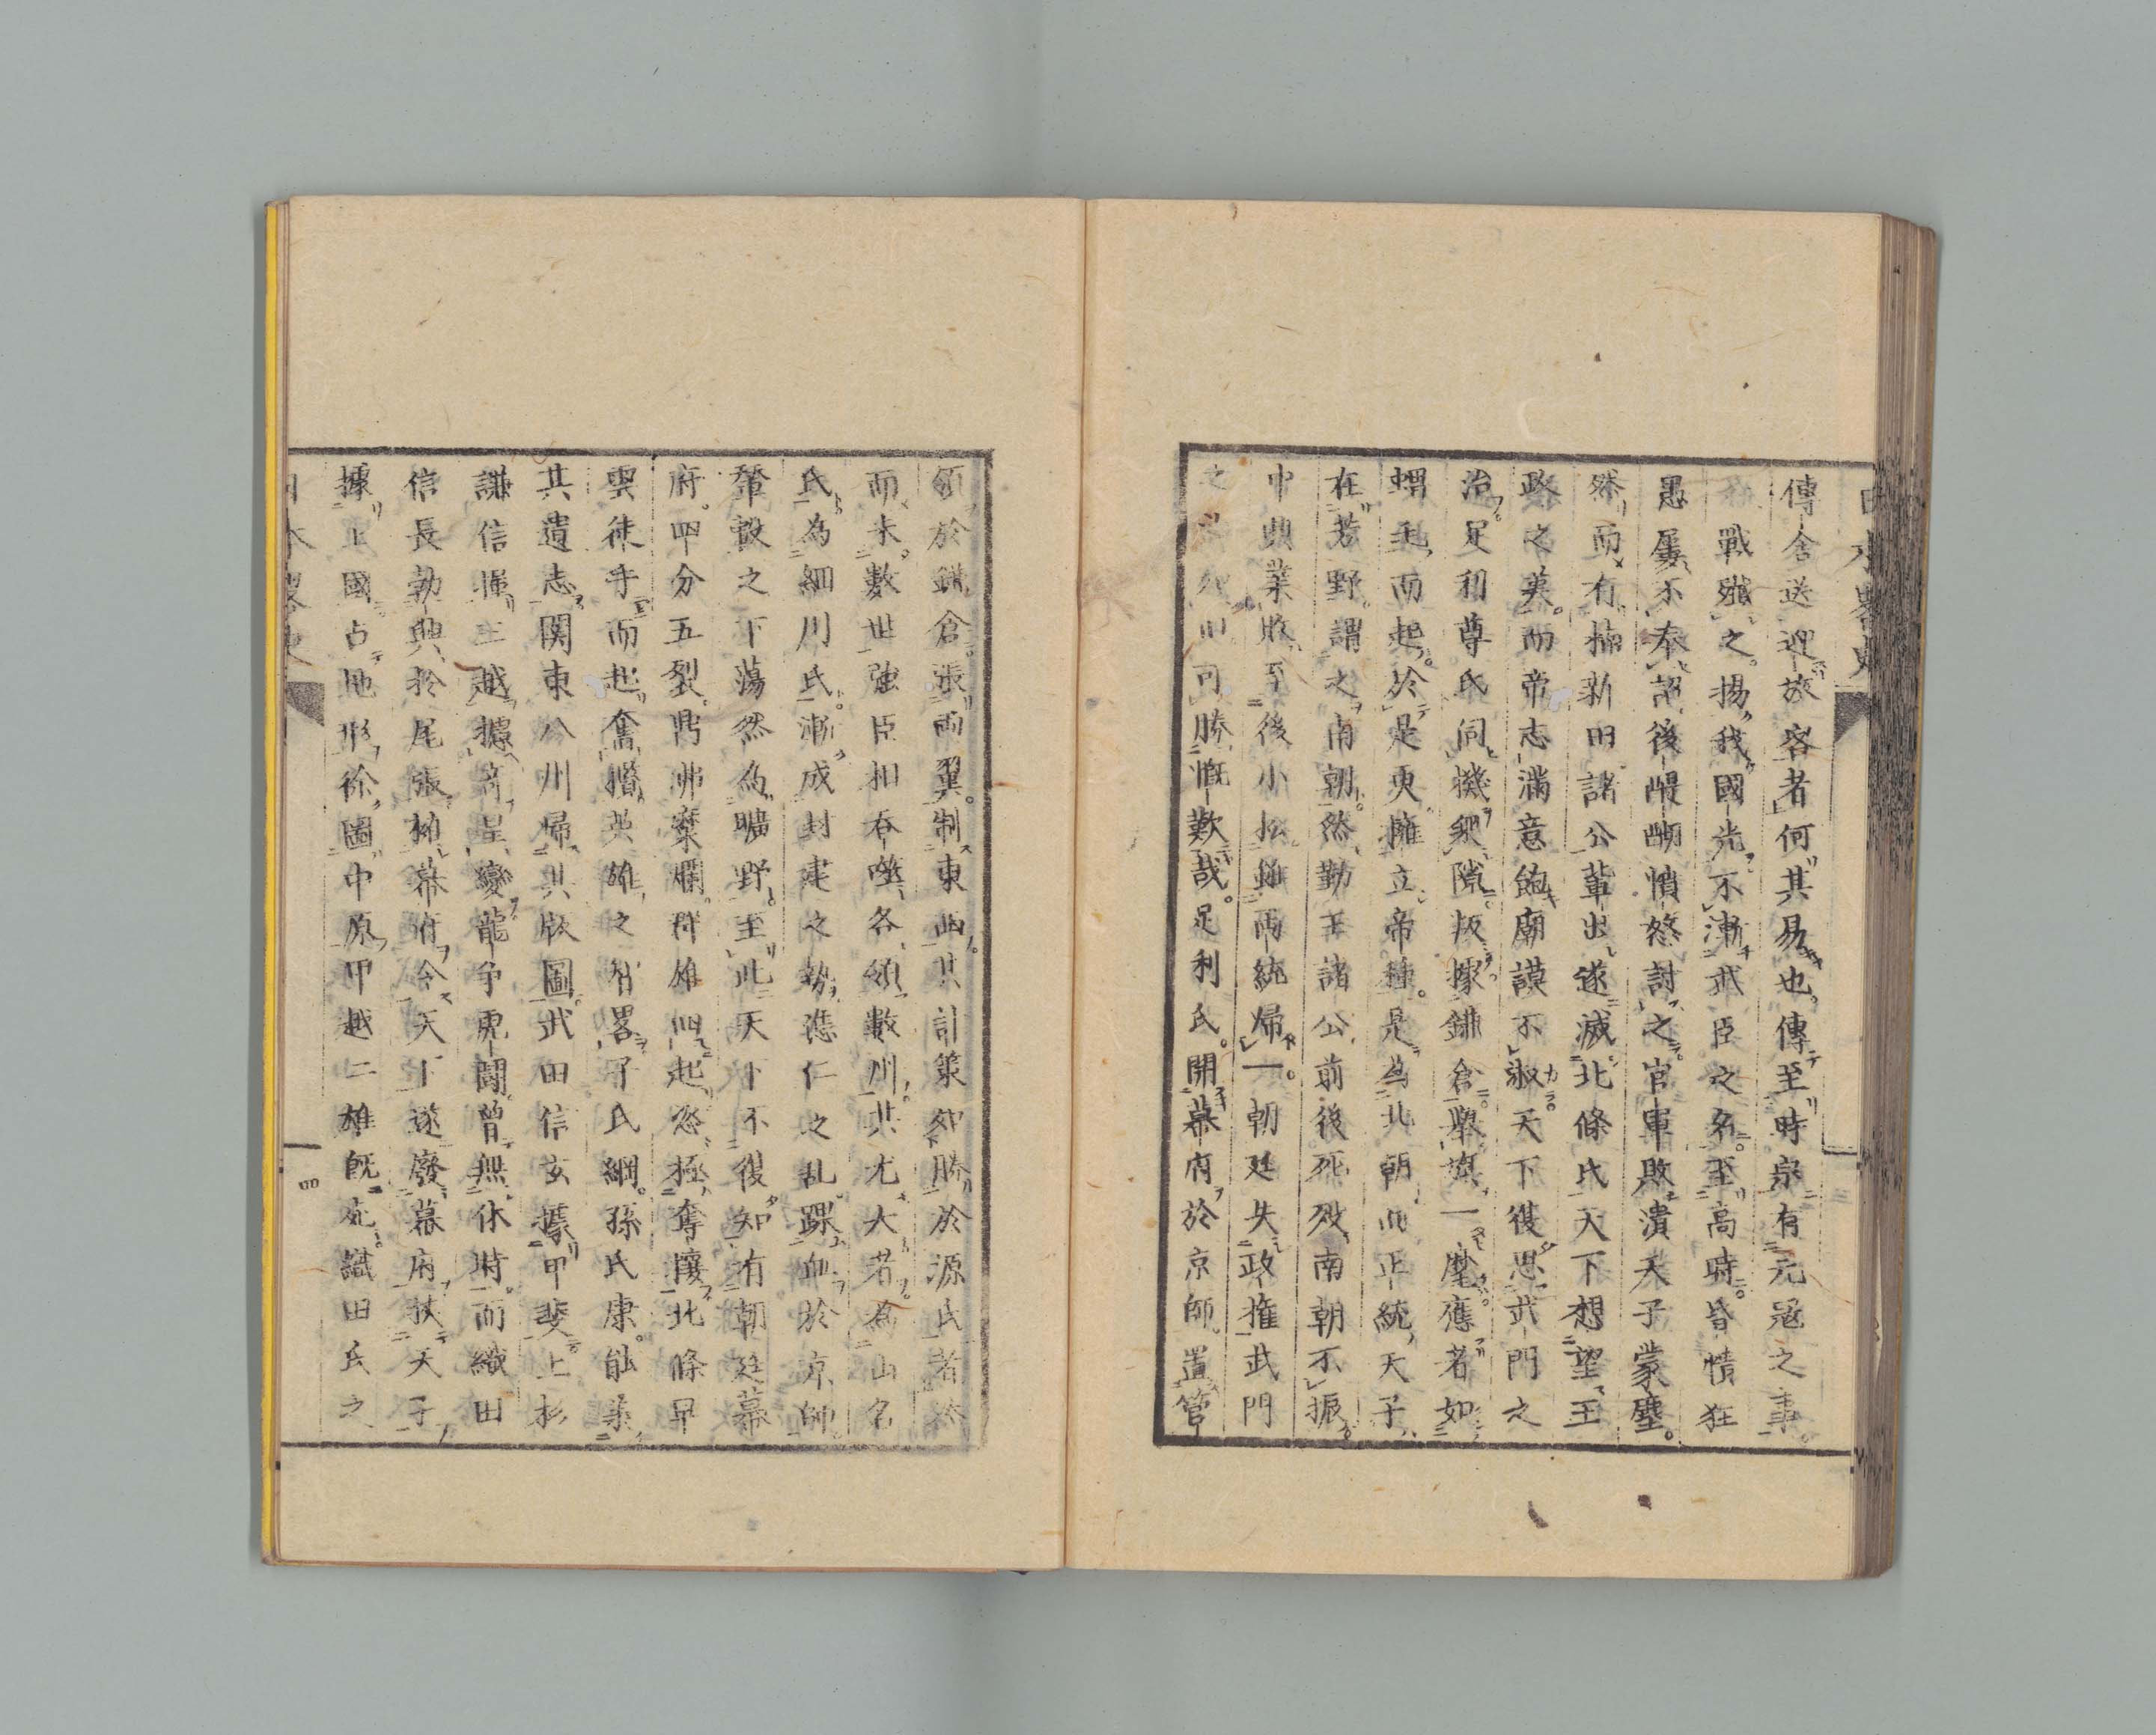 日本略史
傳舍送迎旅客者何其易也傳至時宗有元冦之事
戰殲之揚我國光不漸武臣之名至高時昏惰狂
愚屢不奉詔後醍醐憤怒討之官軍敗潰天子蒙塵
然而有楠新田諸公輩出遂滅北條氏天下想望王
政之美而帝志滿意飽廟謨不淑天下復思武門之
治足利尊氏伺機釁隙叛據鎌倉擧旗一麾應者如
蝟毛而起於是更擁立帝種是為北朝而正統天子
在芳野謂之南朝然勤王諸公前後死歿南朝不振
中興業敗至後小松雖両統歸一朝廷失政權武門
之 可勝慨歎哉足利氏開幕府於京師置管
領於鎌倉張両翼制東西其計策如勝於源氏者然
而未數世強臣相吞噬各領數州其尤大者為山名
氏為細川氏漸成封建之勢應仁之乱蹀血於京師
輦轂之下蕩然為曠野至此天下不復知有朝廷幕
府四分五裂鼎沸糜爛群雄四起恣極奪攘北條早
雲徒手而起奮攬英雄之智畧子氏綱孫氏康能業
其遺志関東八州歸其版圖武田信玄據甲斐上杉
謙信據上越據 呈變龍爭虎鬪曾無休時而織田
信長勃興於尾張 幕府令天下遂廢幕府挾天子
據上國占地形徐圖中原甲越二雄既死織田氏之
日本畧史
四